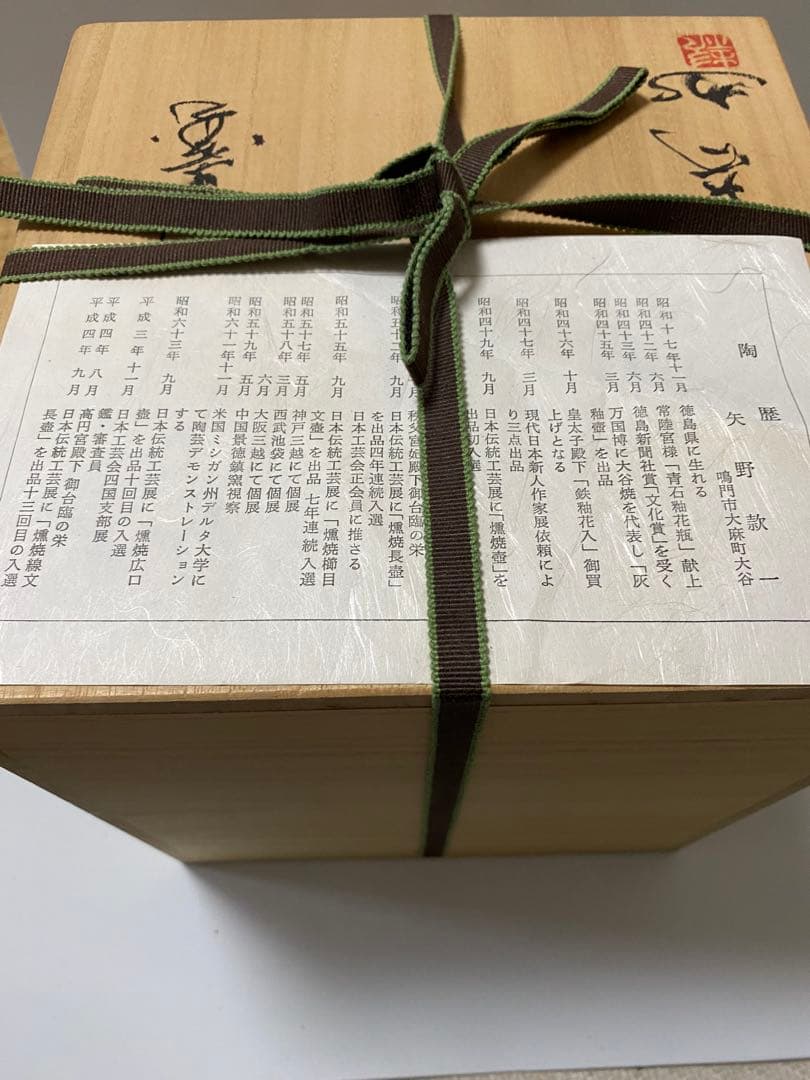 陶歴
矢野款一
鳴門市大麻町大谷
昭和十七年十一月 徳島県に生れる
昭和四十二年 六月 常陸宮様「青石釉花瓶」献上
昭和四十三年 六月 徳島新聞社賞「文化賞」を受く
昭和四十五年 三月 万国博に大谷焼を代表し「灰
釉壺」を出品
昭和四十六年 十月 皇太子殿下「鉄釉花入」御買
上げとなる
昭和四十七年 三月 現代日本新人作家展依頼によ
り三点出品
昭和四十九年 九月 日本伝統工芸展に「燻焼壺」を
出品初入選
月 秩父宮妃殿下御台臨の栄
昭和五十二年 九月 日本伝統工芸展に「燻焼長壺」
を出品四年連続入選
日本工芸会正会員に推さる
昭和五十五年 九月 日本伝統工芸展に「燻焼櫛目
文壺」を出品 七年連続入選
昭和五十七年 五月 神戸三越にて個展
昭和五十八年 三月 西武池袋にて個展
六月 大阪三越にて個展
昭和五十九年 五月 中国景徳鎮窯視察
昭和六十一年十一月 米国ミシガン州デルタ大学に
て陶芸デモンストレーション
する
昭和六十三年 九月 日本伝統工芸展に「燻焼広口
壺」を出品十回目の入選
平成 三年 十一月 日本工芸会四国支部展
鑑・審査員
平成四年 八月 高円宮殿下 御台臨の栄
平成四年 九月 日本伝統工芸展に「燻焼線文
長壺」を出品十三回目の入選